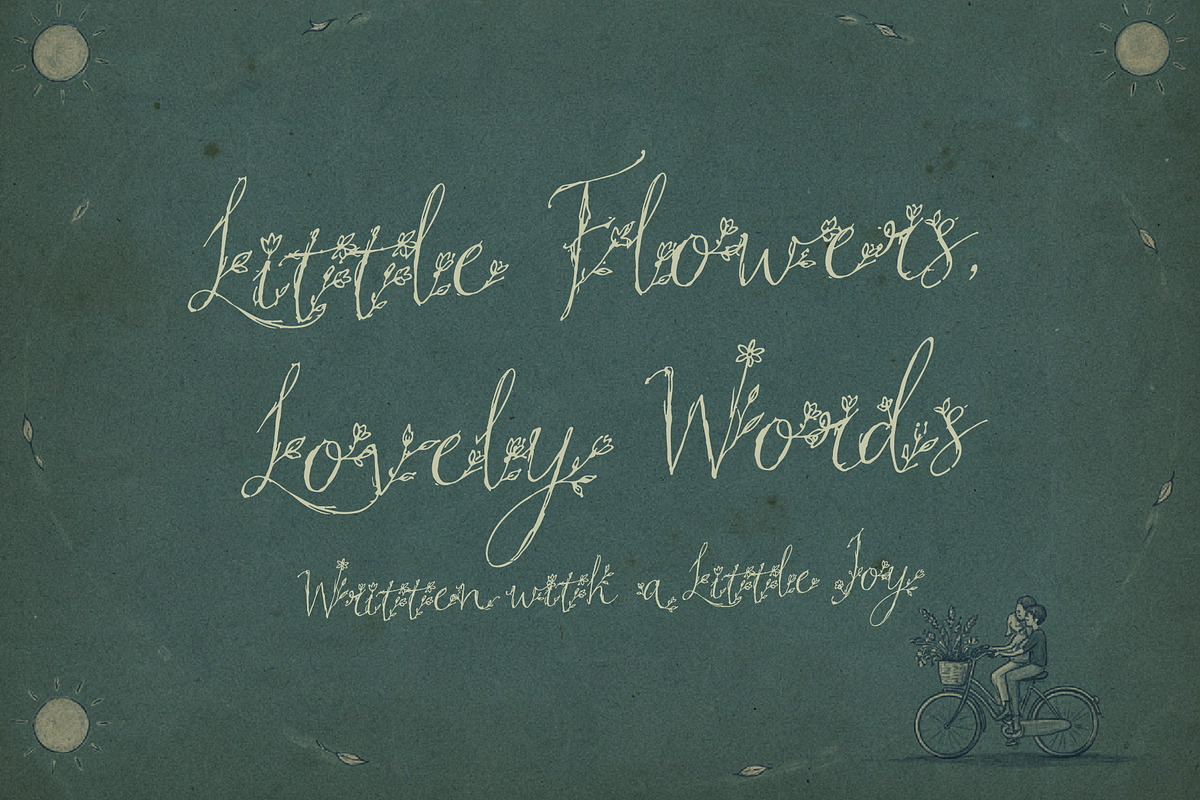 Little Flowers,
Lovely Words
Written with a Little Joy